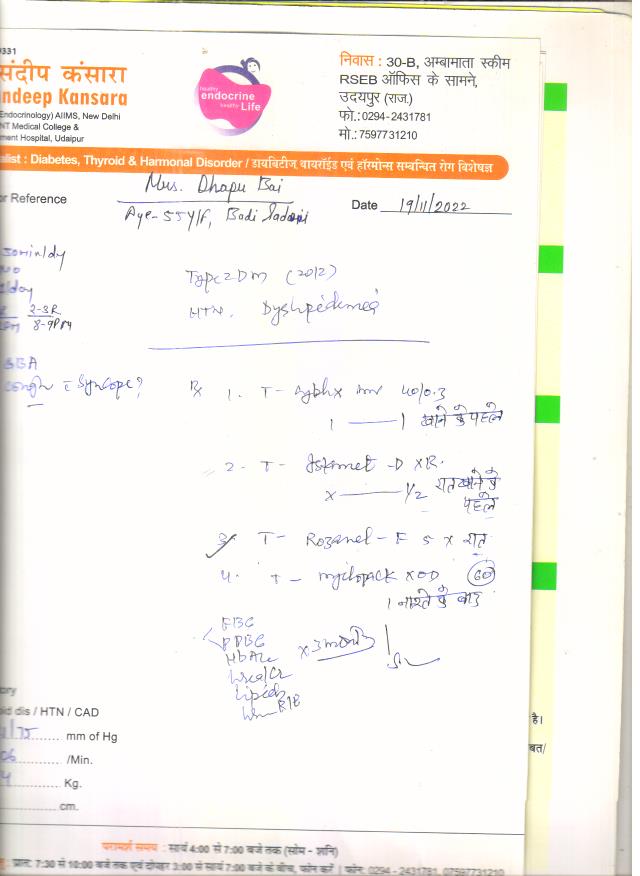 331
संदीप कंसारा
ndeep Kansara
Endocrinology) AIIMS, New Delhi
NT Medical College &
ment Hospital, Udaipur
healthy
endocrine
healthy Life
निवास : 30-B, अम्बामाता स्कीम
RSEB ऑफिस के सामने,
उदयपुर (राज.)
फो.:0294-2431781
मो.: 7597731210
alist : Diabetes, Thyroid & Harmonal Disorder / डायबिटीज वायरॉइड एवं हॉरमोन्स सम्बन्धित रोग विशेषज्ञ
or Reference
Mrs. Dhapu Bai
Age-55Y/F, Badi Sadri
Date 19/11/2022
/day
2-3R
8-9PM
Type 2 DM (2012)
HTN.
SBA
cough c Syncope?
Rx 1. T-
40/0.3
1 — 1 खाने के पहले
2. T- Istamet -D XR.
x — 1/2 रात खाने के
पहले
3. T- Rozanel - F 5 x रात
4. T- x OD 60
1 नाश्ते के बाद
FBG
PPBG
HbA1c
Urea/Cr
Lipids
Urine R/E
x 3 month
ory
id dis / HTN / CAD
/75 mm of Hg
06 /Min.
4 Kg.
cm.
है।
बत/
परामर्श समय : सायं 4:00 से 7:00 बजे तक (सोम - शनि)
: प्रातः 7:30 से 10:00 बजे तक एवं दोपहर 3:00 से सायं 7:00 बजे के बीच, फोन करें | फोन: 0294 - 2431781, 07597731210